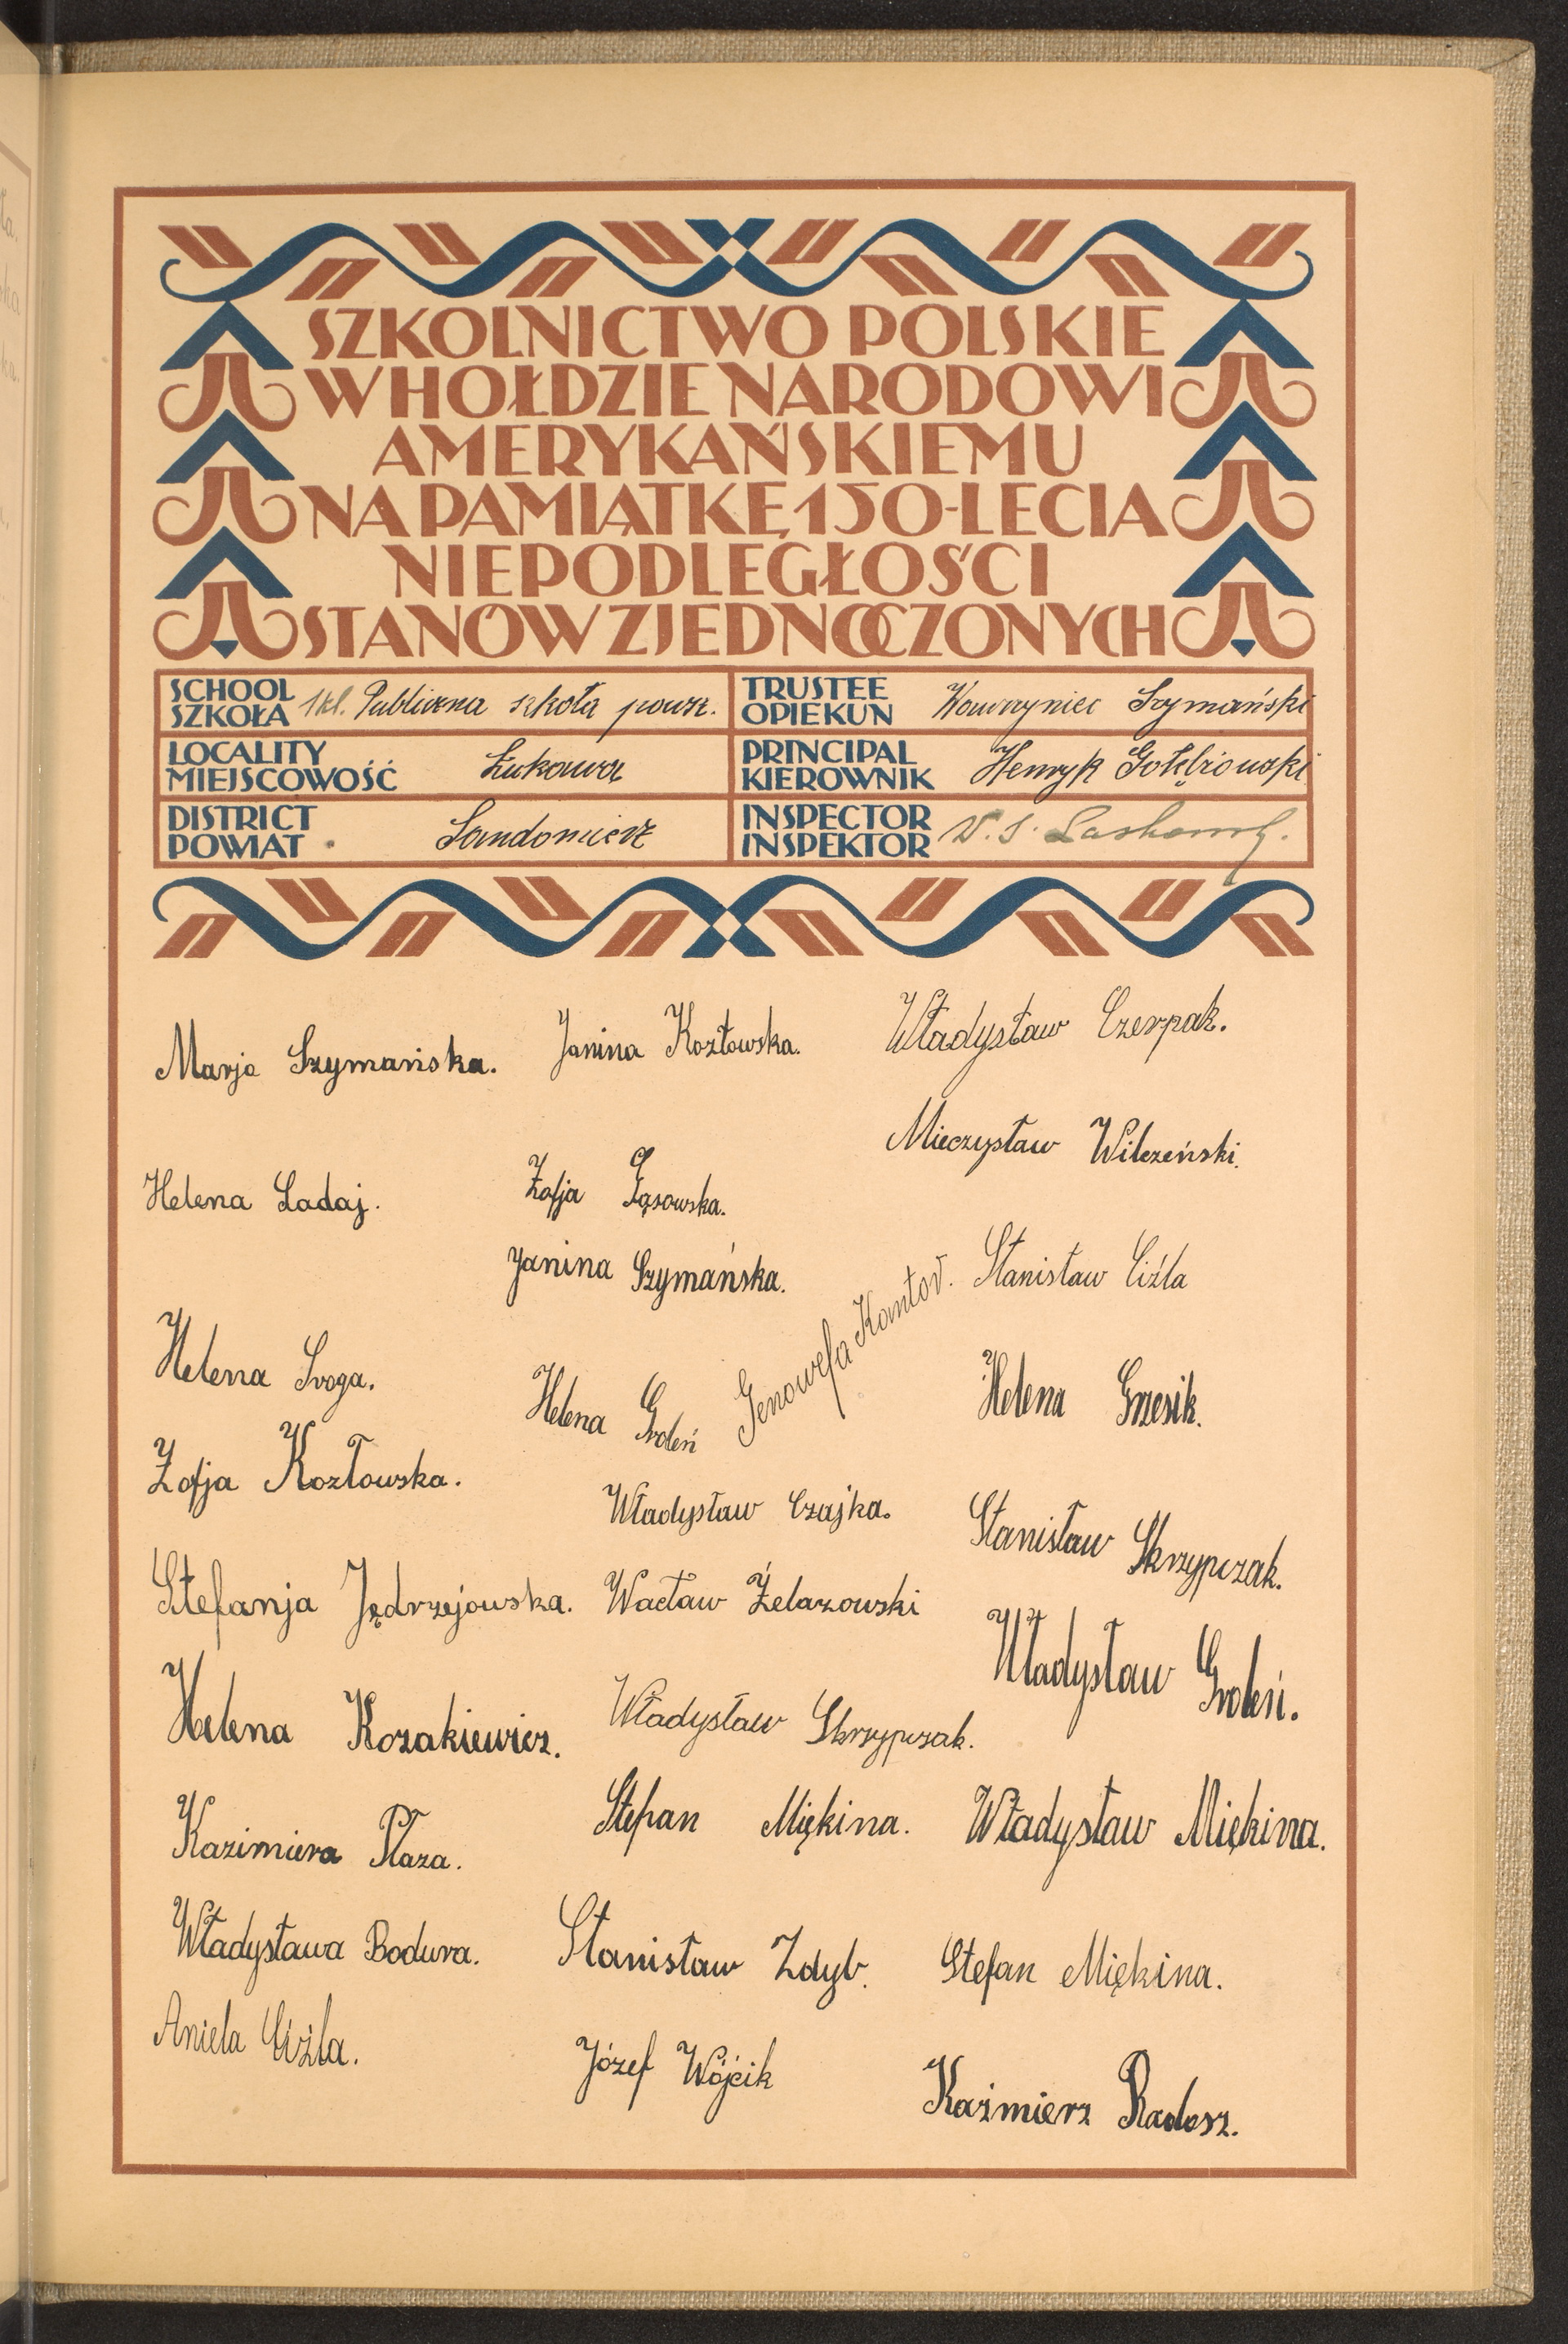 SZKOLNICTWO POLSKIE
W HOŁDZIE NARODOWI
AMERYKAŃSKIEMU
NA PAMIĄTKĘ 150-LECIA
NIEPODLEGŁOŚCI
STANÓW ZJEDNOCZONYCH
SCHOOL
SZKOŁA 1 kl. Publiczna szkoła powsz.
TRUSTEE
OPIEKUN Wawrzyniec Szymański
LOCALITY
MIEJSCOWOŚĆ Łukawa
PRINCIPAL
KIEROWNIK Henryk Gołębiowski
DISTRICT
POWIAT Sandomierz
INSPECTOR
INSPEKTOR
Marja Szymańska.
Janina Kozłowska.
Władysław Czerpak.
Mieczysław Wilczeński.
Helena Ladaj.
Zofja Gąsowska.
Janina Szymańska.
Stanisław Ciźla
Genowefa Kantor.
Helena Sroga.
Helena Groleń
Helena Grzesik.
Zofja Kozłowska.
Władysław Czajka.
Stanisław Skrzypczak.
Stefanja Jędrzejowska.
Wacław Żelazowski
Władysław Groleń.
Helena Kozakiewicz.
Władysław Skrzypczak.
Kazimiera Płaza.
Stefan Miękina.
Władysław Miękina.
Władysława Bodura.
Stanisław Zdyb.
Stefan Miękina.
Aniela Ciźla.
Józef Wójcik
Kaźmierz Radosz.